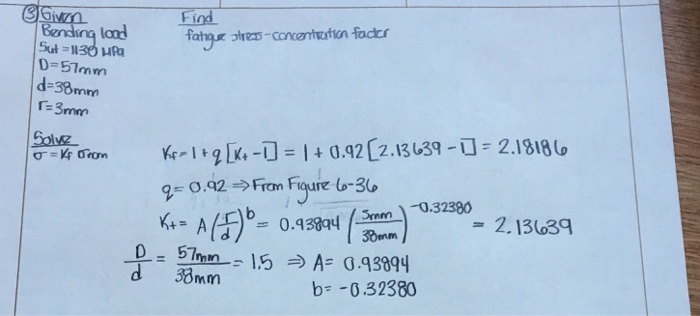 ③ Given
Bending load
Sut = 1130 MPa
D=57mm
d=38mm
r=3mm
Find
fatigue stress-concentration factor
Solve
σ = Kf σnom
Kf = 1 + q [Kt - 1] = 1 + 0.92 [2.13639 - 1] = 2.18186
q = 0.92 ⇒ From Figure 6-36
Kt = A (r/d)^b = 0.93894 (3mm/38mm)^-0.32380 = 2.13639
D/d = 57mm/38mm = 1.5 ⇒ A = 0.93894
b = -0.32380